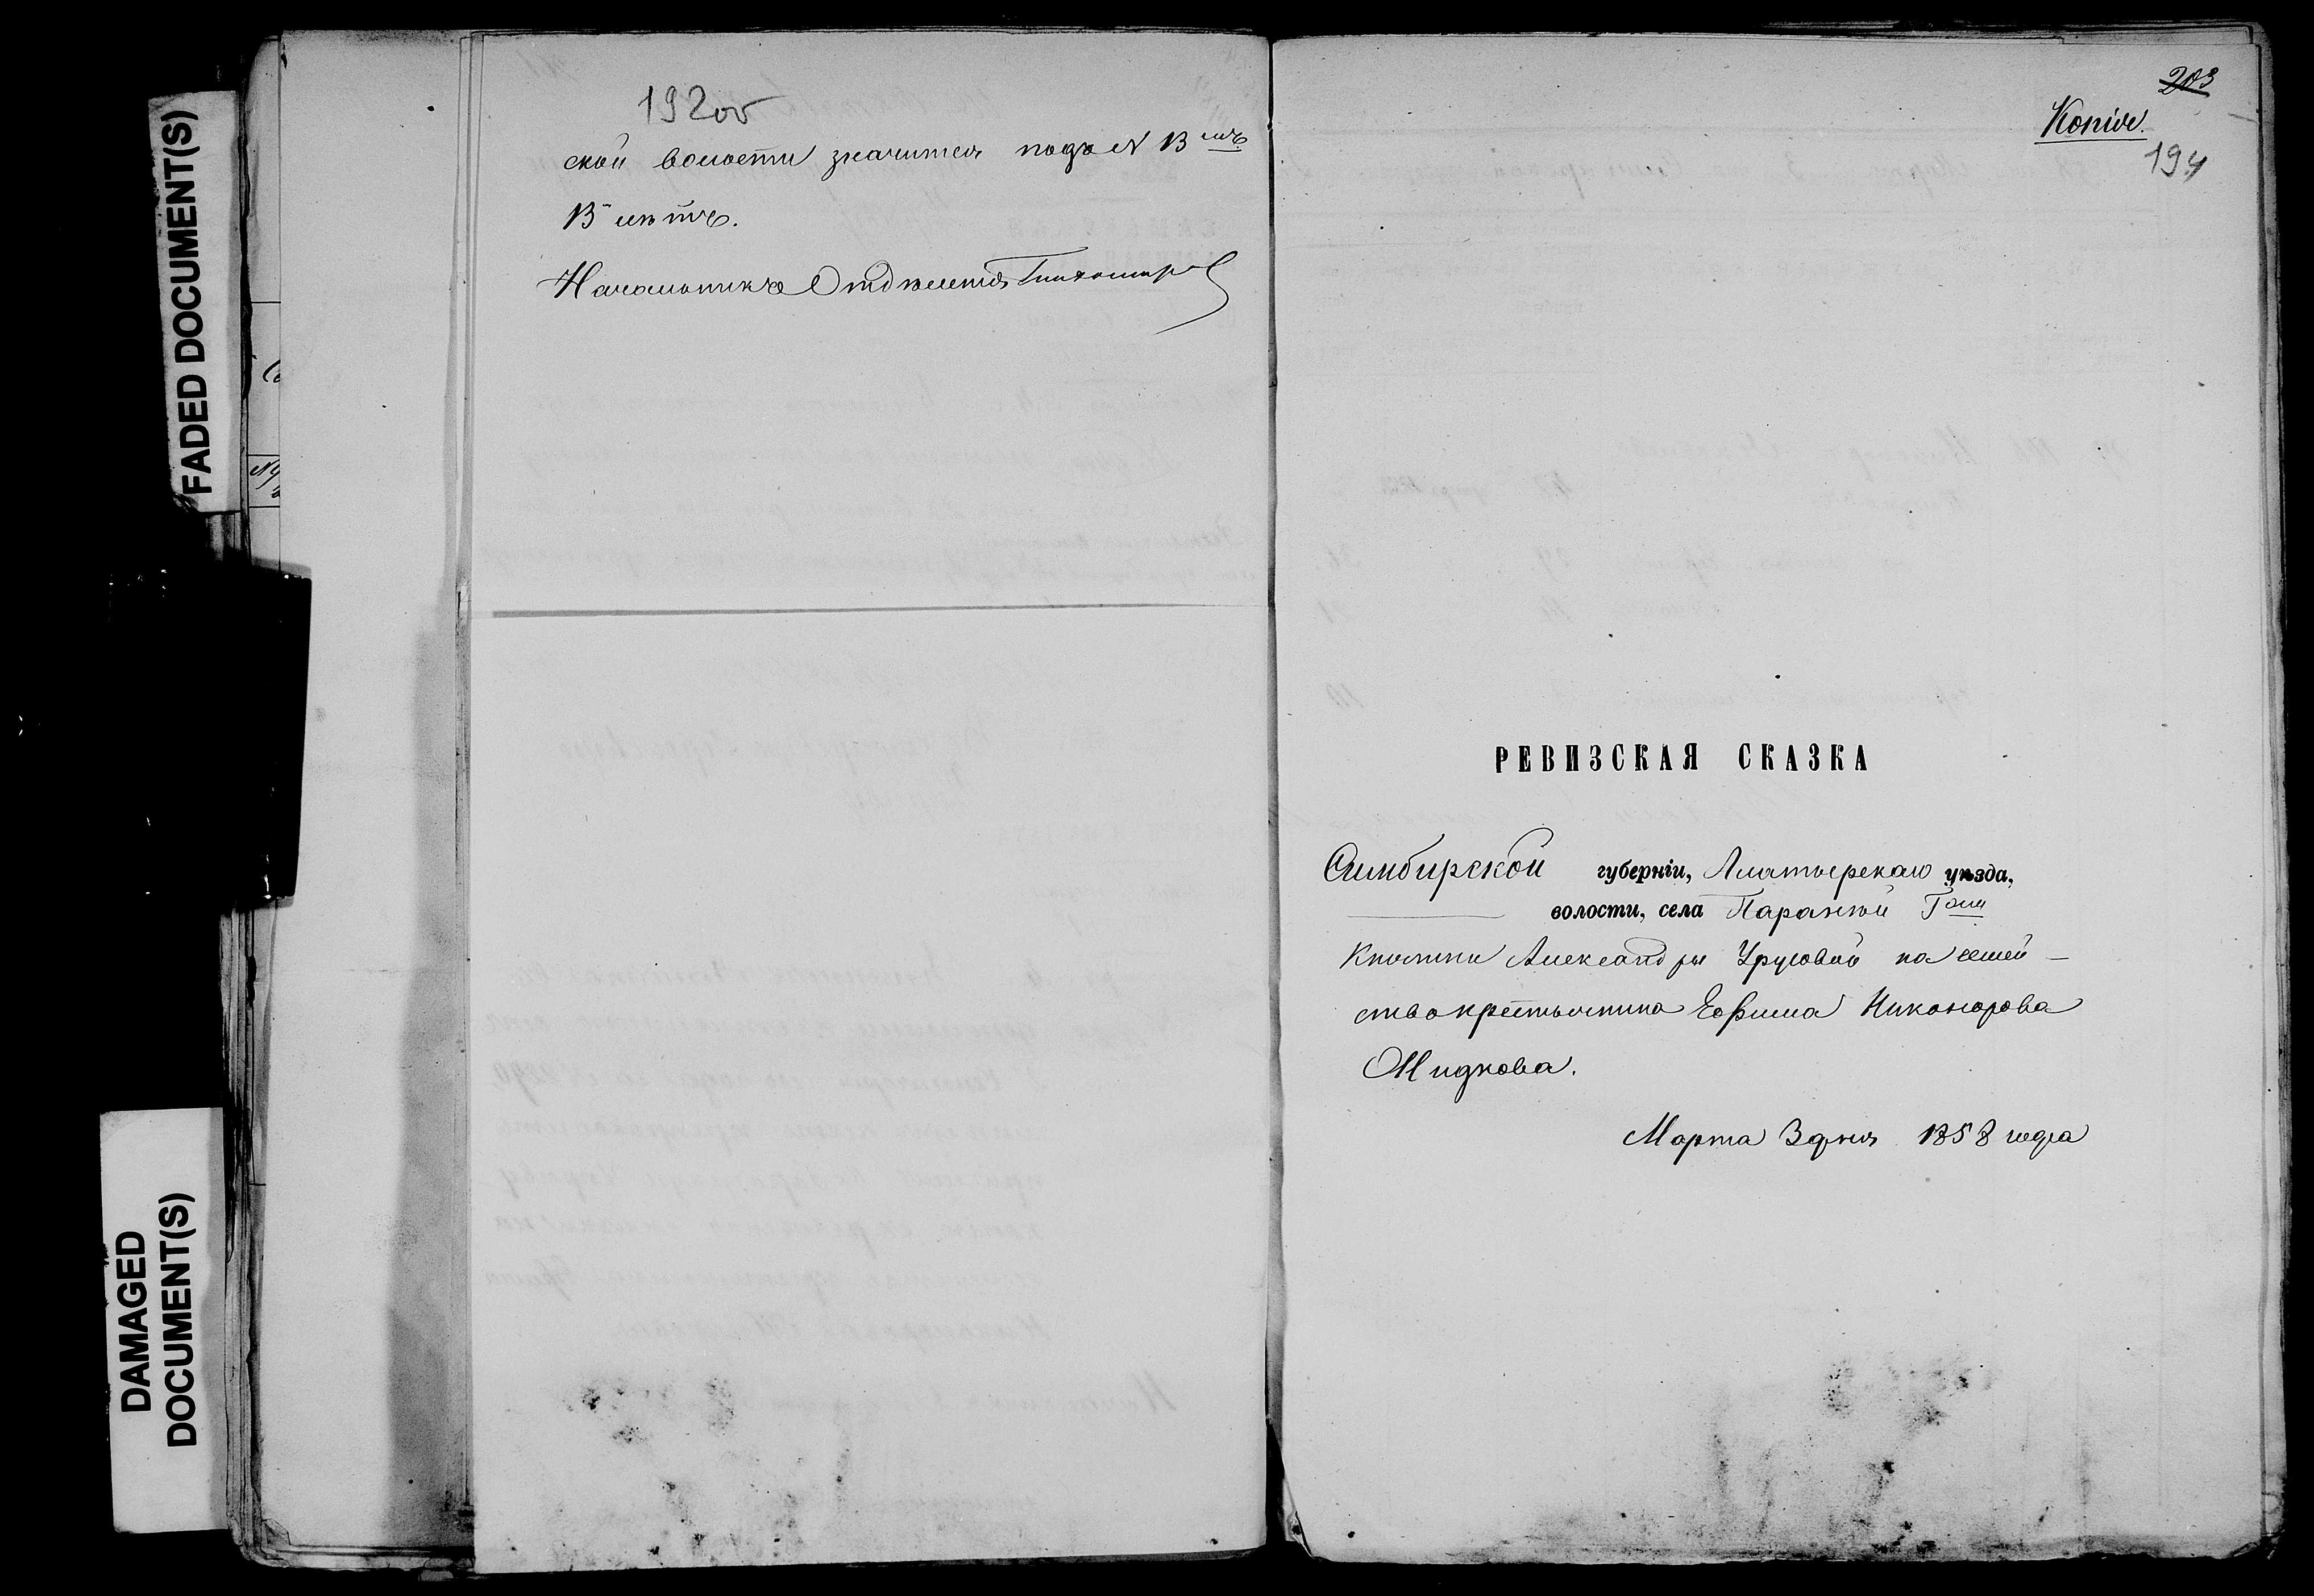 FADED DOCUMENT(S)
DAMAGED
DOCUMENT(S)
192об
ской волости значится подъ № 13 мъ
13 лѣтъ.
Начальникъ Отдѣленія
203
Копія.
194
РЕВИЗСКАЯ СКАЗКА
Симбирской губерніи, Алатырскаго уѣзда,
волости, села Паранѣи Г-жи
Княгини Александры Урусовой на семей-
ство крестьянина Ефима Никонорова
Мидкова.
Марта 3 дня 1858 года